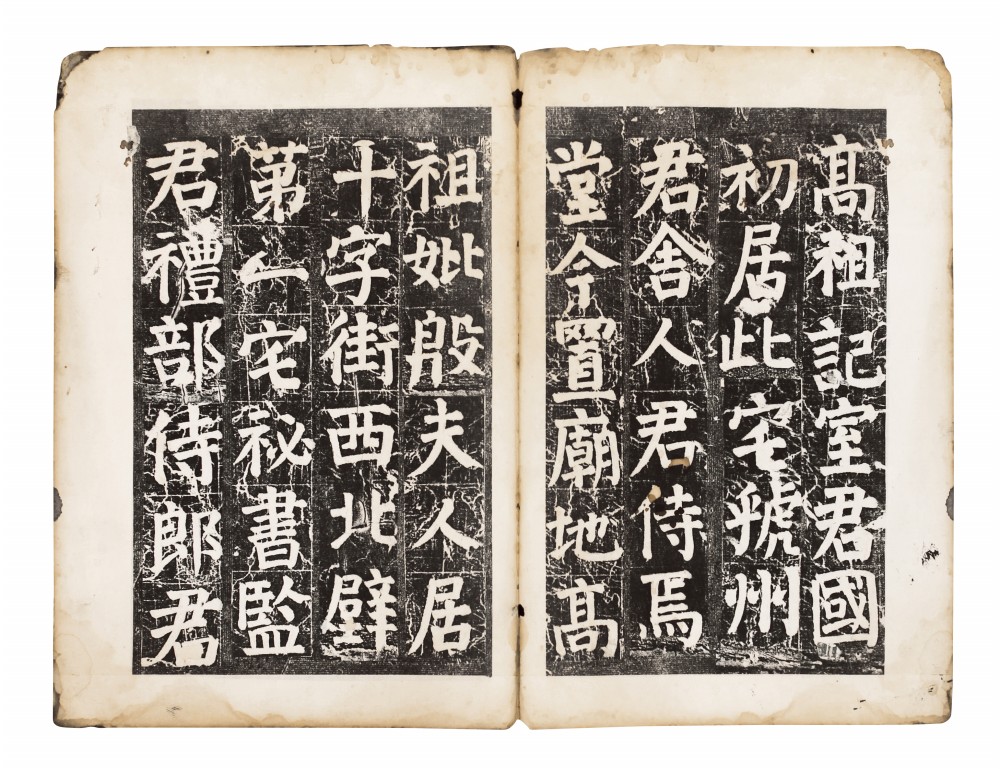 髙祖記室君國
初居此宅虢州
君舍人君侍焉
堂今置廟地髙
祖妣殷夫人居
十字街西北壁
苐一宅祕書監
君禮部侍郎君